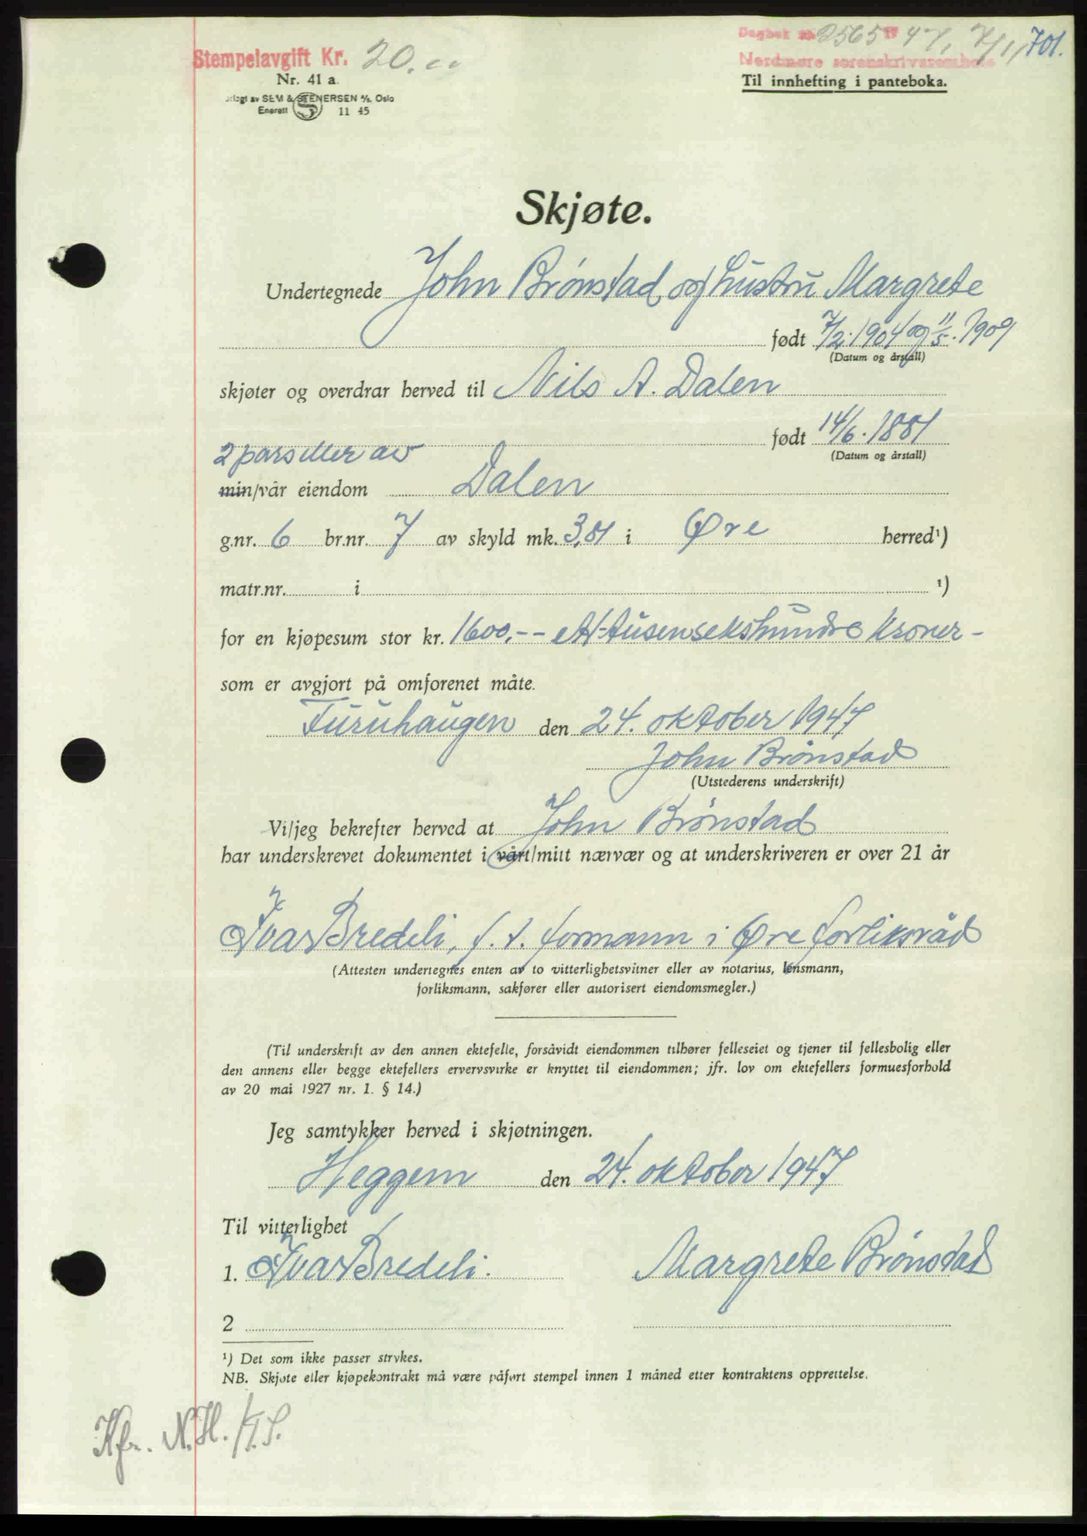 Stempelavgift Kr. 20.00
Nr. 41 a
SEM & STENERSEN A/S, Oslo
Enerett 11 45
Dagbok nr 2565 19 47, 7/11, 701.
Nordmøre sorenskriverembete
Til innhefting i panteboka.
Skjøte.
Undertegnede John Brønstad og hustru Margrete
født 7/2.1904 og 11/5.1909
(Datum og årstall)
skjøter og overdrar herved til Nils A. Dalen
født 14/6.1881
(Datum og årstall)
2 parseller av
min/vår eiendom Dalen
g.nr. 6 br.nr. 7 av skyld mk. 3,81 i Øre herred¹)
matr.nr. i ¹)
for en kjøpesum stor kr. 1600,-- Ettusensekshundre kroner -
som er avgjort på omforenet måte.
Furuhaugen den 24. oktober 1947
John Brønstad
(Utstederens underskrift)
Vi/jeg bekrefter herved at John Brønstad
har underskrevet dokumentet i vårt/mitt nærvær og at underskriveren er over 21 år
Ivar Bredeli, f. t. formann i Øre forliksråd
(Attesten undertegnes enten av to vitterlighetsvitner eller av notarius, lensmann,
forliksmann, sakfører eller autorisert eiendomsmegler.)
(Til underskrift av den annen ektefelle, forsåvidt eiendommen tilhører felleseiet og tjener til fellesbolig eller
den annens eller begge ektefellers ervervsvirke er knyttet til eiendommen; jfr. lov om ektefellers formuesforhold
av 20 mai 1927 nr. 1. § 14.)
Jeg samtykker herved i skjøtningen.
Heggem den 24. oktober 1947
Til vitterlighet
1. Ivar Bredeli. Margrete Brønstad
2
¹) Det som ikke passer strykes.
NB. Skjøte eller kjøpekontrakt må være påført stempel innen 1 måned etter kontraktens opprettelse.
Kfr. N.H./T.S.